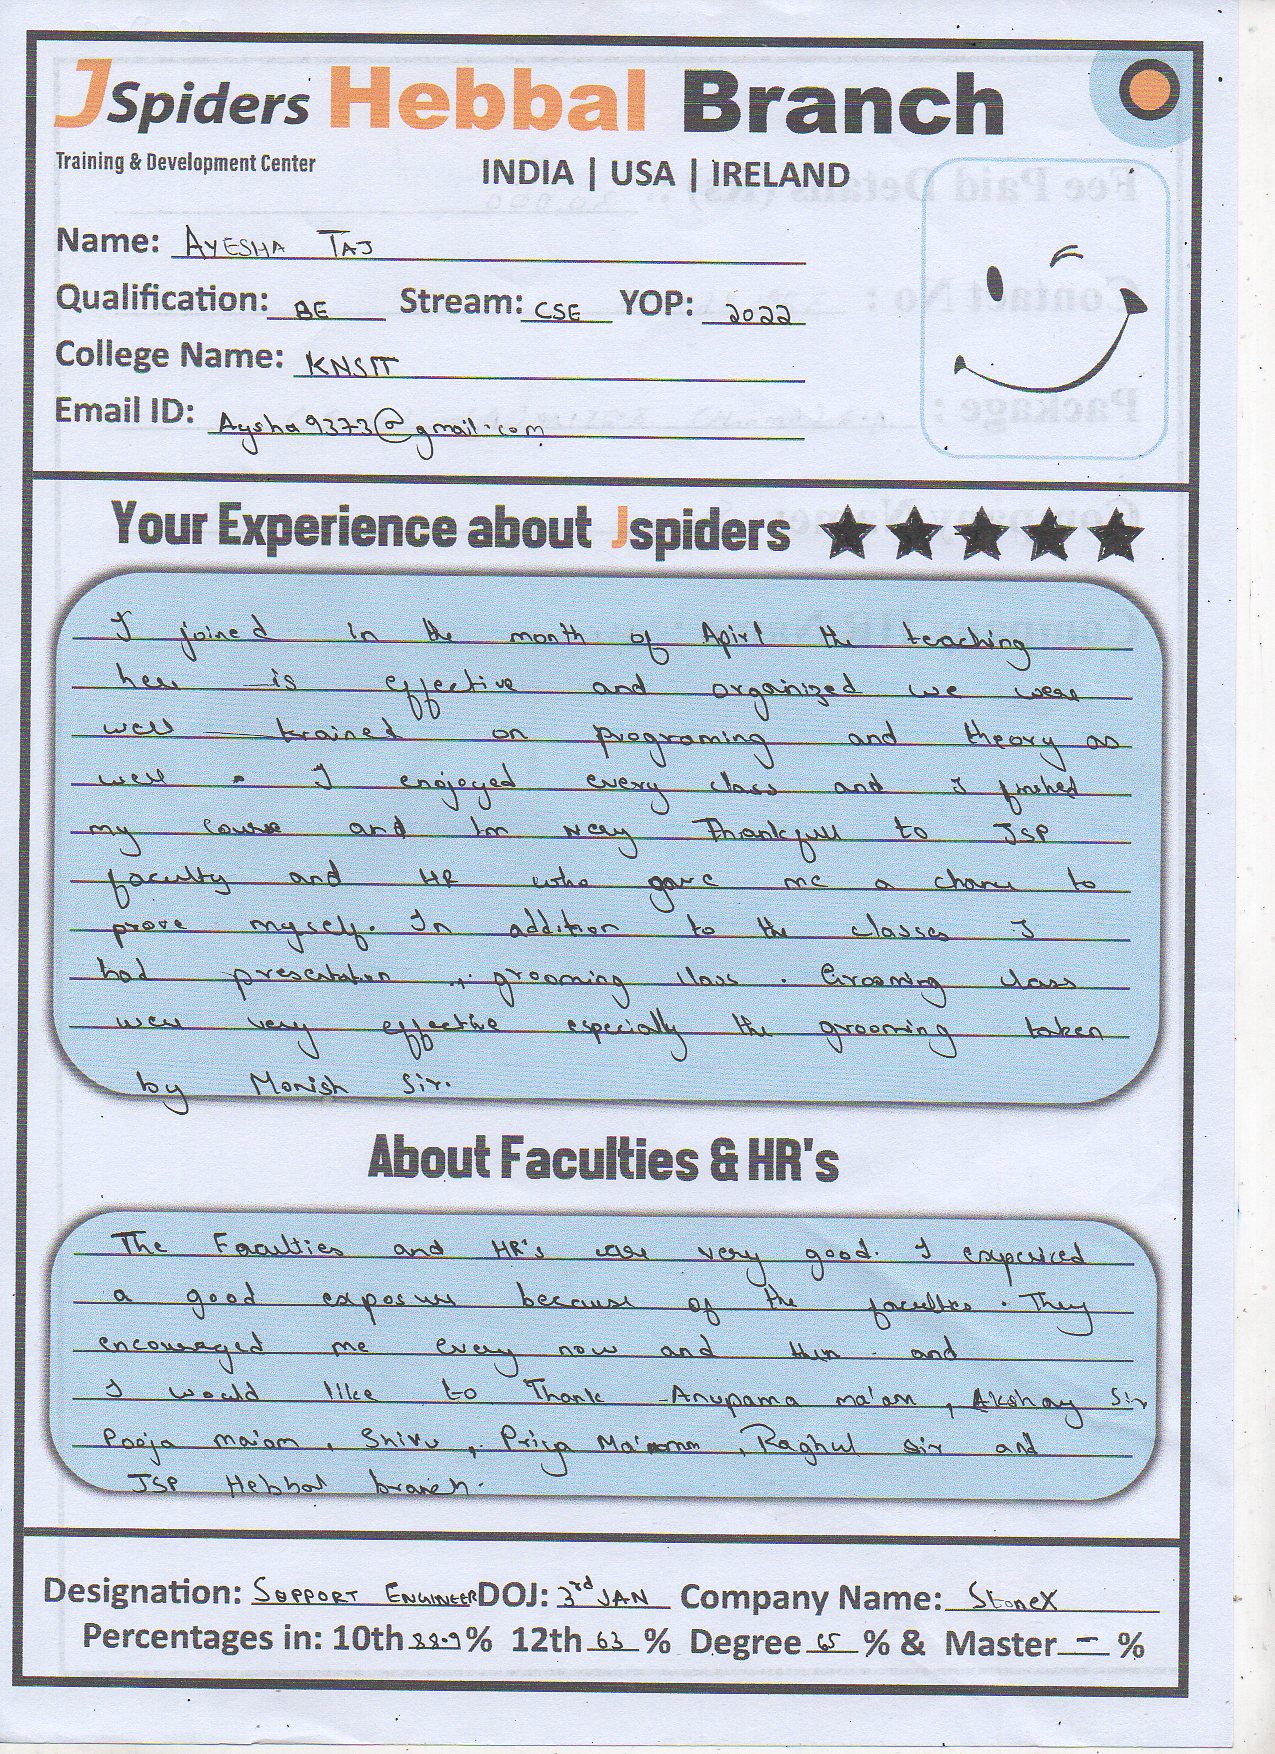 JSpiders Hebbal Branch
Training & Development Center
INDIA | USA | IRELAND
Name: AYESHA TAJ
Qualification: BE Stream: CSE YOP: 2022
College Name: KNSIT
Email ID: Aysha9373@gmail.com
Your Experience about Jspiders
I joined in the month of Apirl the teaching
here is effective and organized we were
well trained on programing and theory as
well . I enojoyed every class and I finshed
my course and Im very Thankfull to JSP
faculty and HR who gave me a chance to
prove myself. In addition to the classes I
had presentation , grooming class . Grooming class
were very effective especially the grooming taken
by Monish Sir.
About Faculties & HR's
The Faculties and HR's are very good. I
a good exposure because of the faculties . They
encouraged me every now and then and
I would like to Thank Anupama ma'am , Akshay Sir
Pooja ma'am , Shivu , Priya Ma'amm , Raghul sir and
JSP Hebbal branch.
Designation: SUPPORT ENGINEER DOJ: 3rd JAN Company Name: StoneX
Percentages in: 10th % 12th 63 % Degree 65 % & Master - %